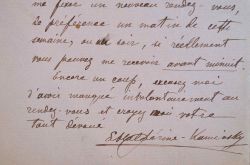 me fixer un nouveau rendez-vous,
de préférence un matin de cette
semaine, ou le soir, si réellement
vous pouvez me recevoir avant minuit.
Encore un coup, excusez moi
d'avoir manqué involontairement au
rendez-vous et croyez moi votre
tout dévoué